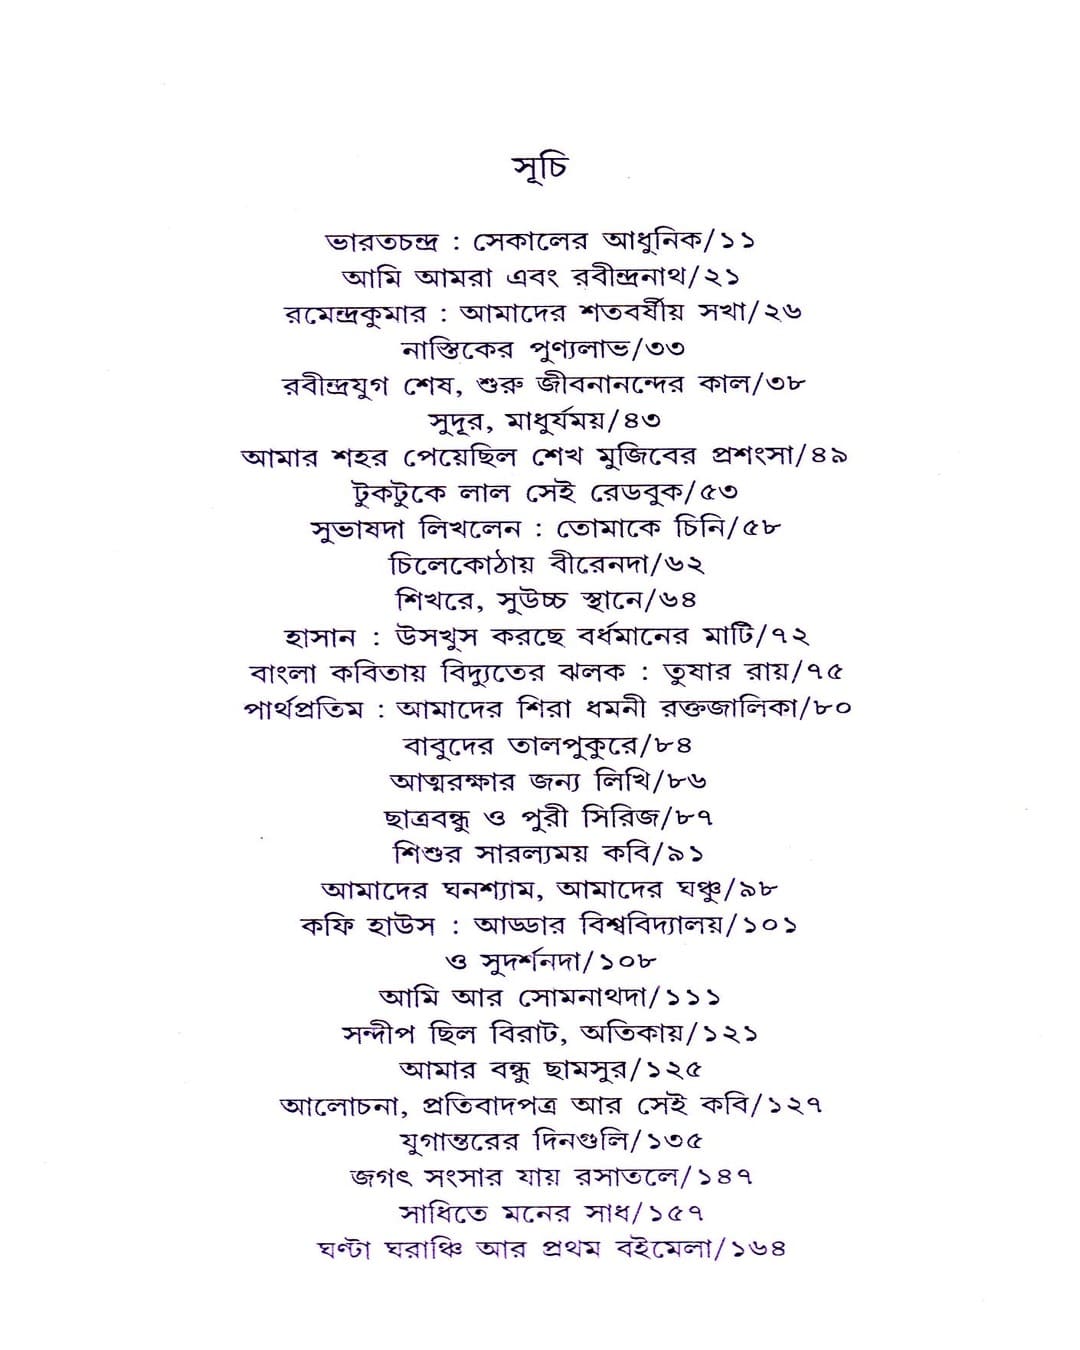 সূচি
ভারতচন্দ্র : সেকালের আধুনিক/১১
আমি আমরা এবং রবীন্দ্রনাথ/২১
রমেন্দ্রকুমার : আমাদের শতবর্ষীয় সখা/২৬
নাস্তিকের পুণ্যলাভ/৩৩
রবীন্দ্রযুগ শেষ, শুরু জীবনানন্দের কাল/৩৮
সুদূর, মাধুর্যময়/৪৩
আমার শহর পেয়েছিল শেখ মুজিবের প্রশংসা/৪৯
টুকটুকে লাল সেই রেডবুক/৫৩
সুভাষদা লিখলেন : তোমাকে চিনি/৫৮
চিলেকোঠায় বীরেনদা/৬২
শিখরে, সুউচ্চ স্থানে/৬৪
হাসান : উসখুস করছে বর্ধমানের মাটি/৭২
বাংলা কবিতায় বিদ্যুতের ঝলক : তুষার রায়/৭৫
পার্থপ্রতিম : আমাদের শিরা ধমনী রক্তজালিকা/৮০
বাবুদের তালপুকুরে/৮৪
আত্মরক্ষার জন্য লিখি/৮৬
ছাত্রবন্ধু ও পুরী সিরিজ/৮৭
শিশুর সারল্যময় কবি/৯১
আমাদের ঘনশ্যাম, আমাদের ঘঞ্চু/৯৮
কফি হাউস : আড্ডার বিশ্ববিদ্যালয়/১০১
ও সুদর্শনদা/১০৮
আমি আর সোমনাথদা/১১১
সন্দীপ ছিল বিরাট, অতিকায়/১২১
আমার বন্ধু ছামসুর/১২৫
আলোচনা, প্রতিবাদপত্র আর সেই কবি/১২৭
যুগান্তরের দিনগুলি/১৩৫
জগৎ সংসার যায় রসাতলে/১৪৭
সাধিতে মনের সাধ/১৫৭
ঘণ্টা ঘরাঞ্চি আর প্রথম বইমেলা/১৬৪